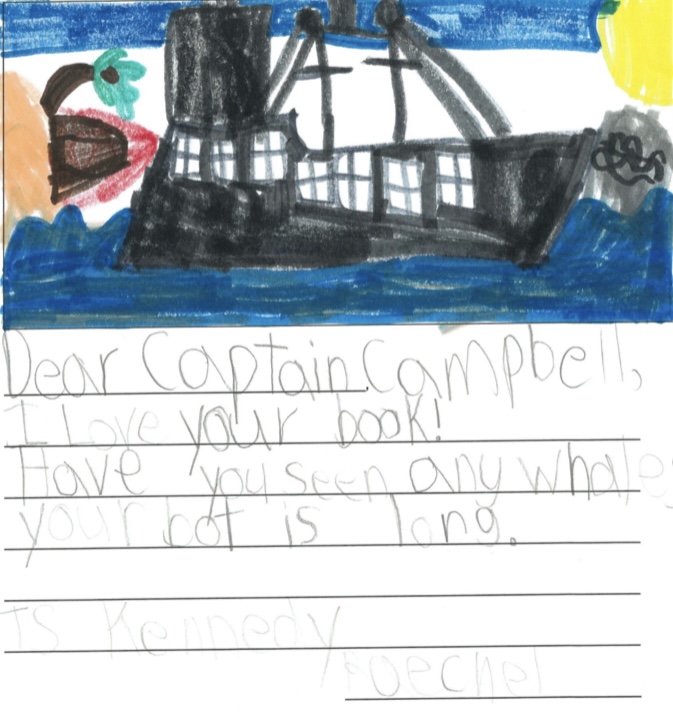 Dear Captain Campbell,
I Love your book!
Have you seen any whales
your bot is long.
Is Kennedy
Boechel